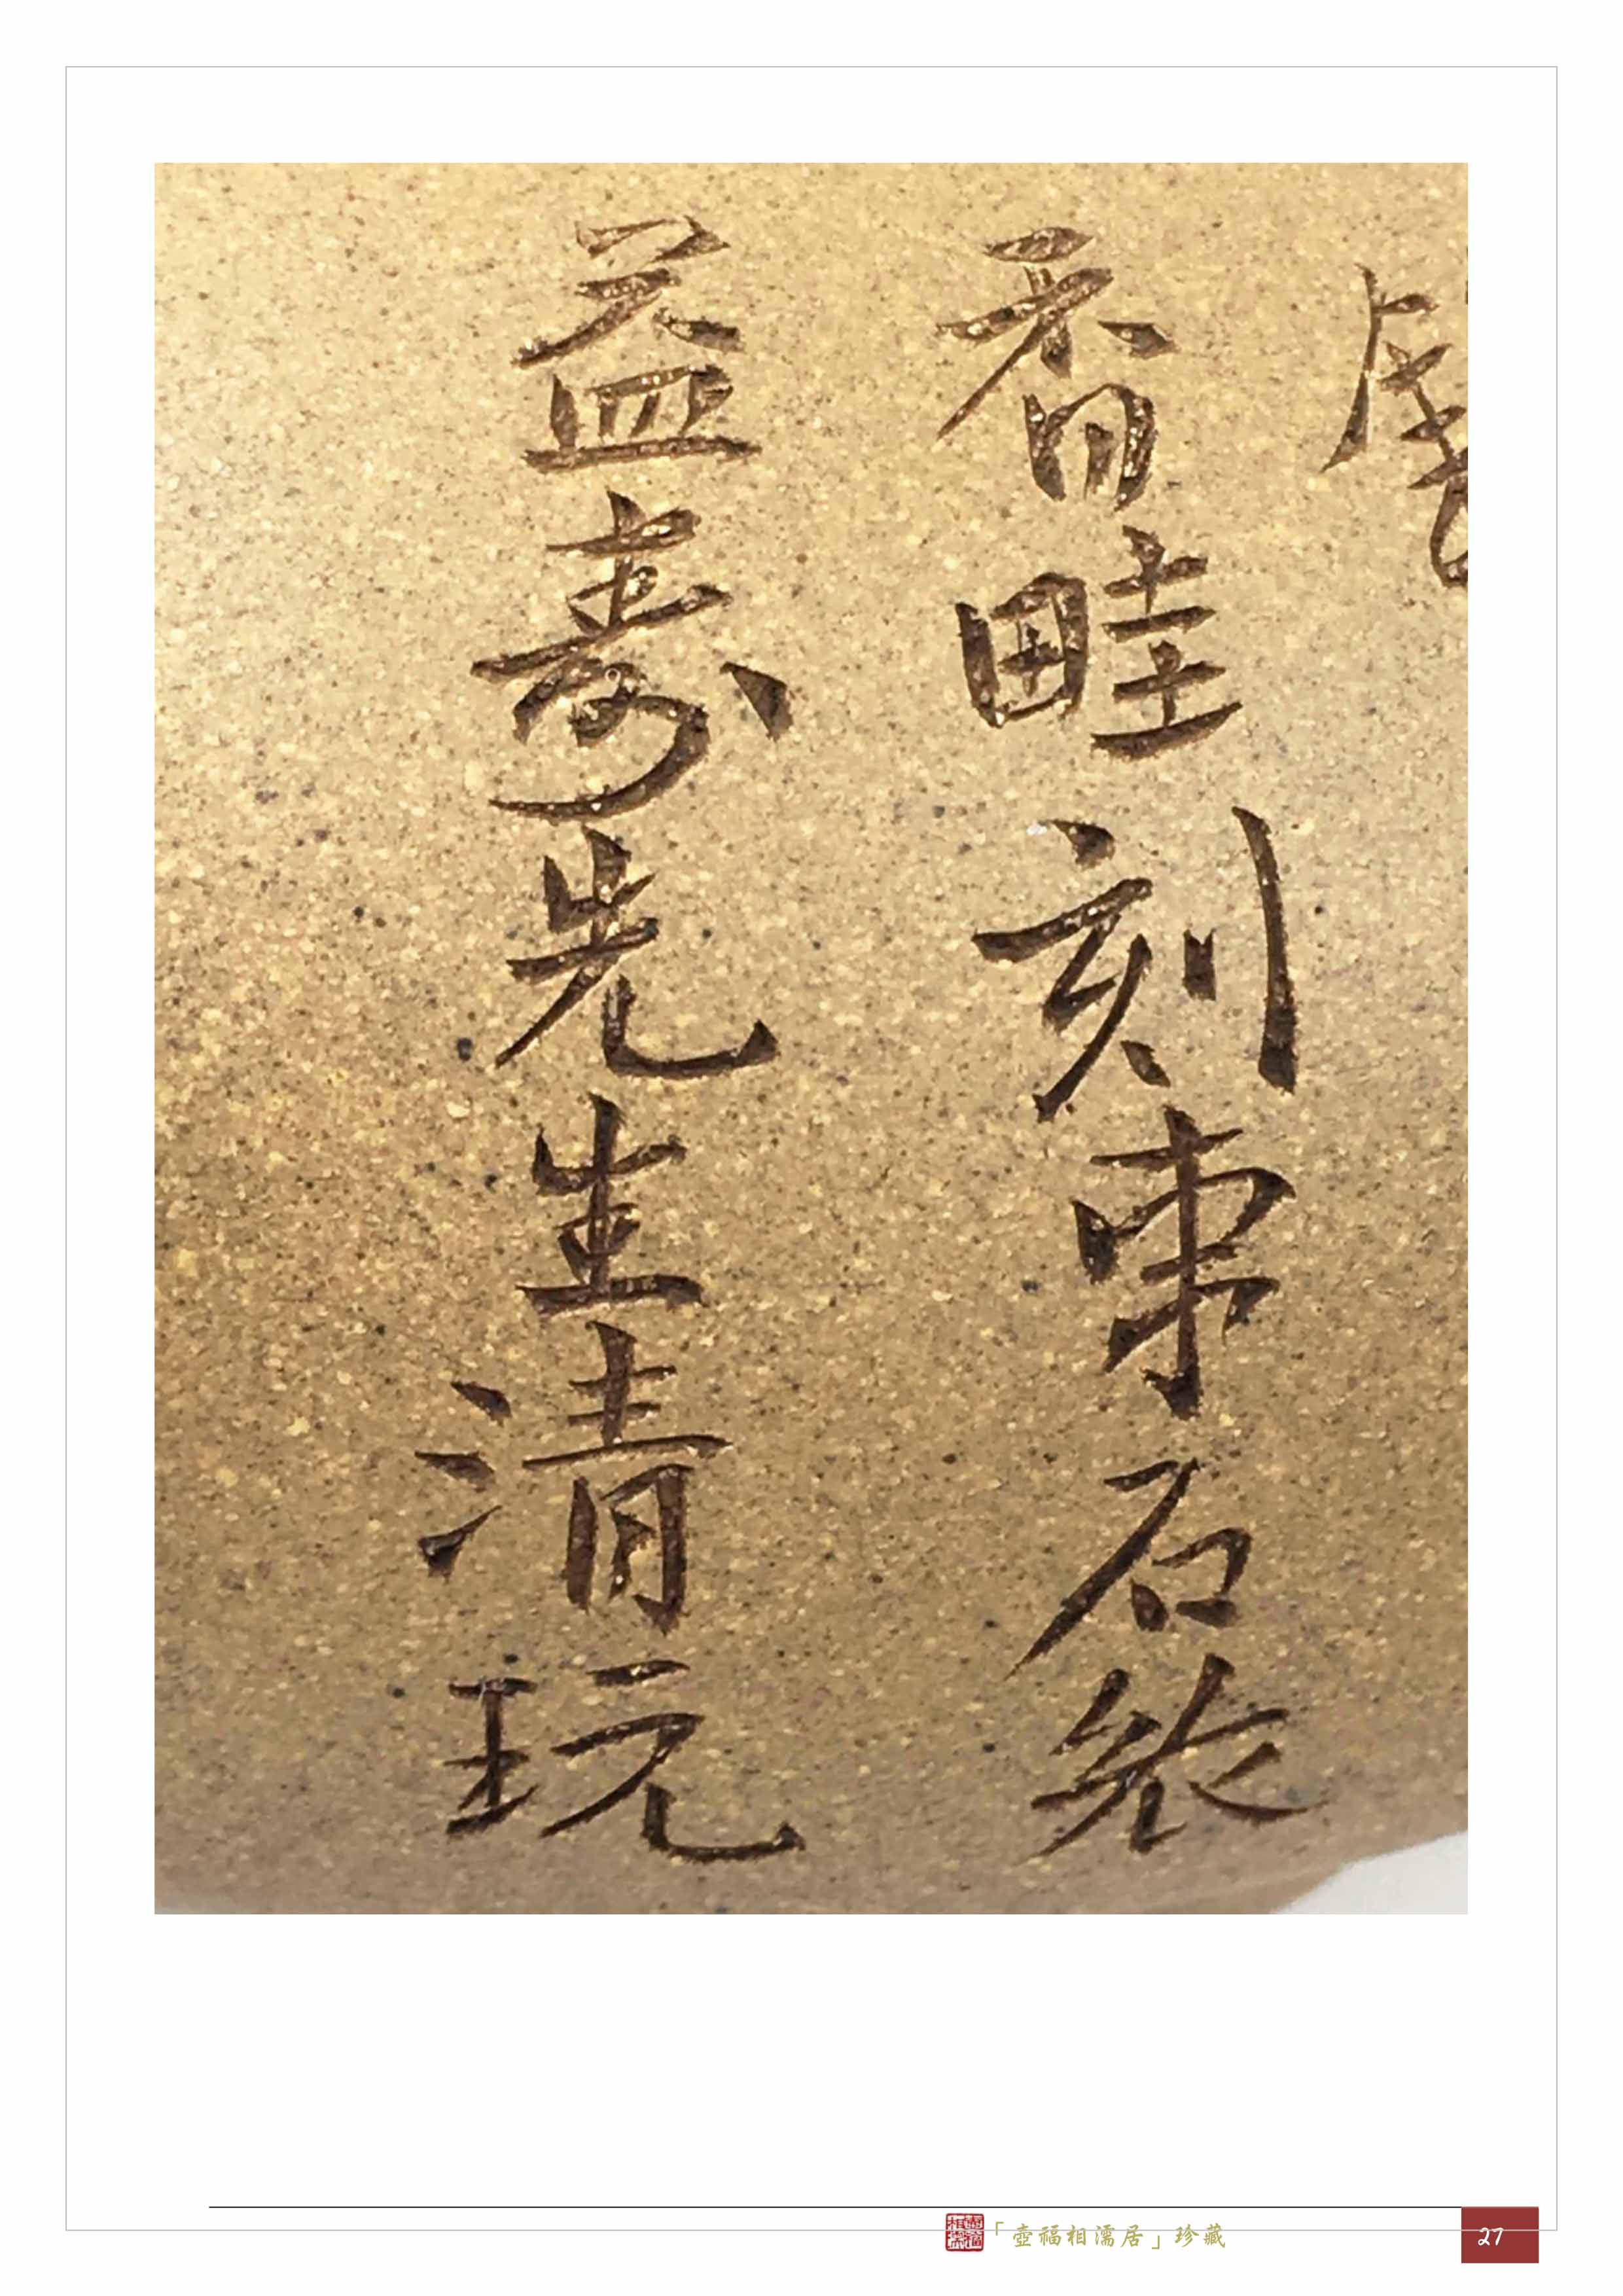 香畦刻東石
益壽先生清玩
「壺福相濡居」珍藏
27